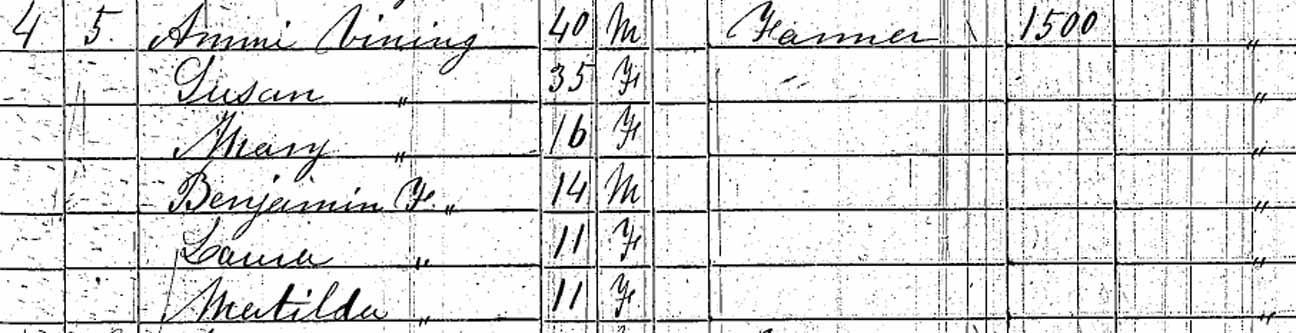 4 5. Ammi Vining 40 M Farmer 1500 "
Susan " 35 F "
Mary " 16 F "
Benjamin F. " 14 M "
Laura " 11 F "
Matilda " 11 F "